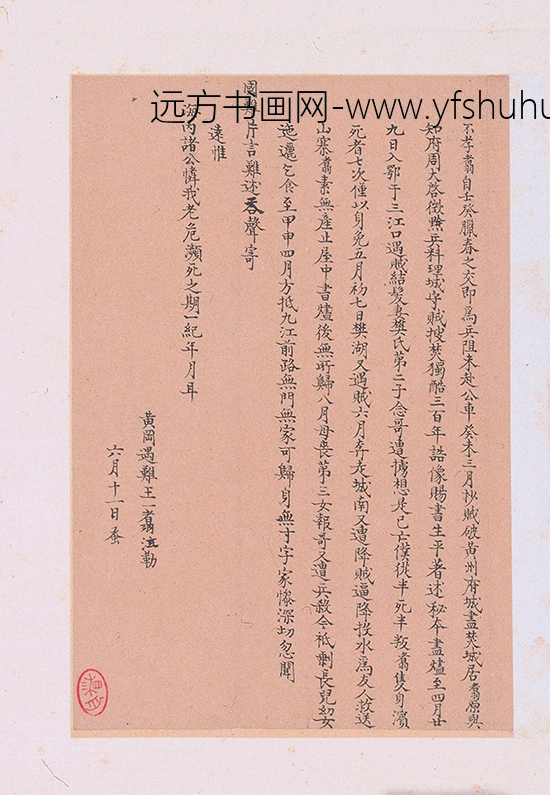 远方书画网-www.yfshuhu
不孝翥自壬癸臘春之交即為兵阻未赴公車癸未三月抄賊破黃州府城盡焚城居翥原與
知府周大啓徵點兵料理城守賊搜焚獨酷三百年誥像賜書生平著述秘本盡燼至四月廿
九日入鄂于三江口遇賊結髮妻樊氏第二子念哥遭擄想是已亡僕從半死半叛翥隻身濱
死者七次僅以身免五月初七日樊湖又遇賊六月奔走城南又遭降賊逼降投水為友人救送
山寨翥素無產止屋中書燼後無所歸八月母喪第三女報哥又遭兵殺今祗剩長兒幼女
迤邐乞食至甲申四月方抵九江前路無門無家可歸身無寸字家慘深切忽聞
國難片言難述吞聲寄
遠惟
海內諸公憐我老危瀕死之期一紀年月耳
黃岡遇難王一翥泣勒
六月十一日